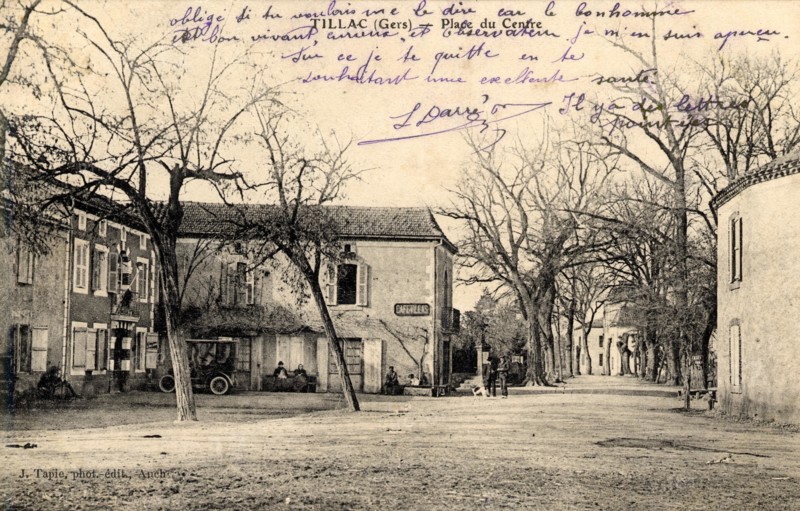 obligé si tu voulois me le dire car le bonhomme
TILLAC (Gers) — Place du Centre
est bon vivant curieux et observateur je m'en suis aperçu.
Sur ce je te quitte en te
souhaitant une excellente santé
L Darré
Il y a des lettres
CAFÉ
J. Tapie, phot. édit., Auch